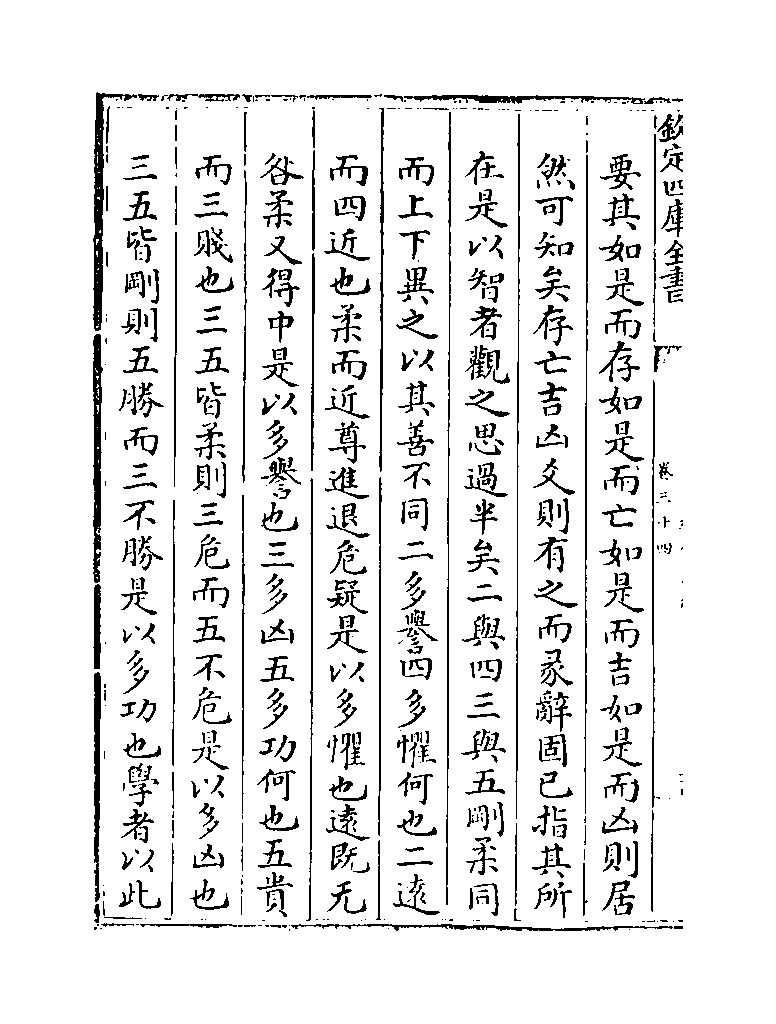 欽定四庫全書
卷三十四
要其如是而存如是而亡如是而吉如是而凶則居
然可知矣存亡吉凶爻則有之而彖辭固已指其所
在是以智者觀之思過半矣二與四三與五剛柔同
而上下異之以其善不同二多譽四多懼何也二遠
而四近也柔而近尊進退危疑是以多懼也逺既无
咎柔又得中是以多譽也三多凶五多功何也五貴
而三賤也三五皆柔則三危而五不危是以多凶也
三五皆剛則五勝而三不勝是以多功也學者以此